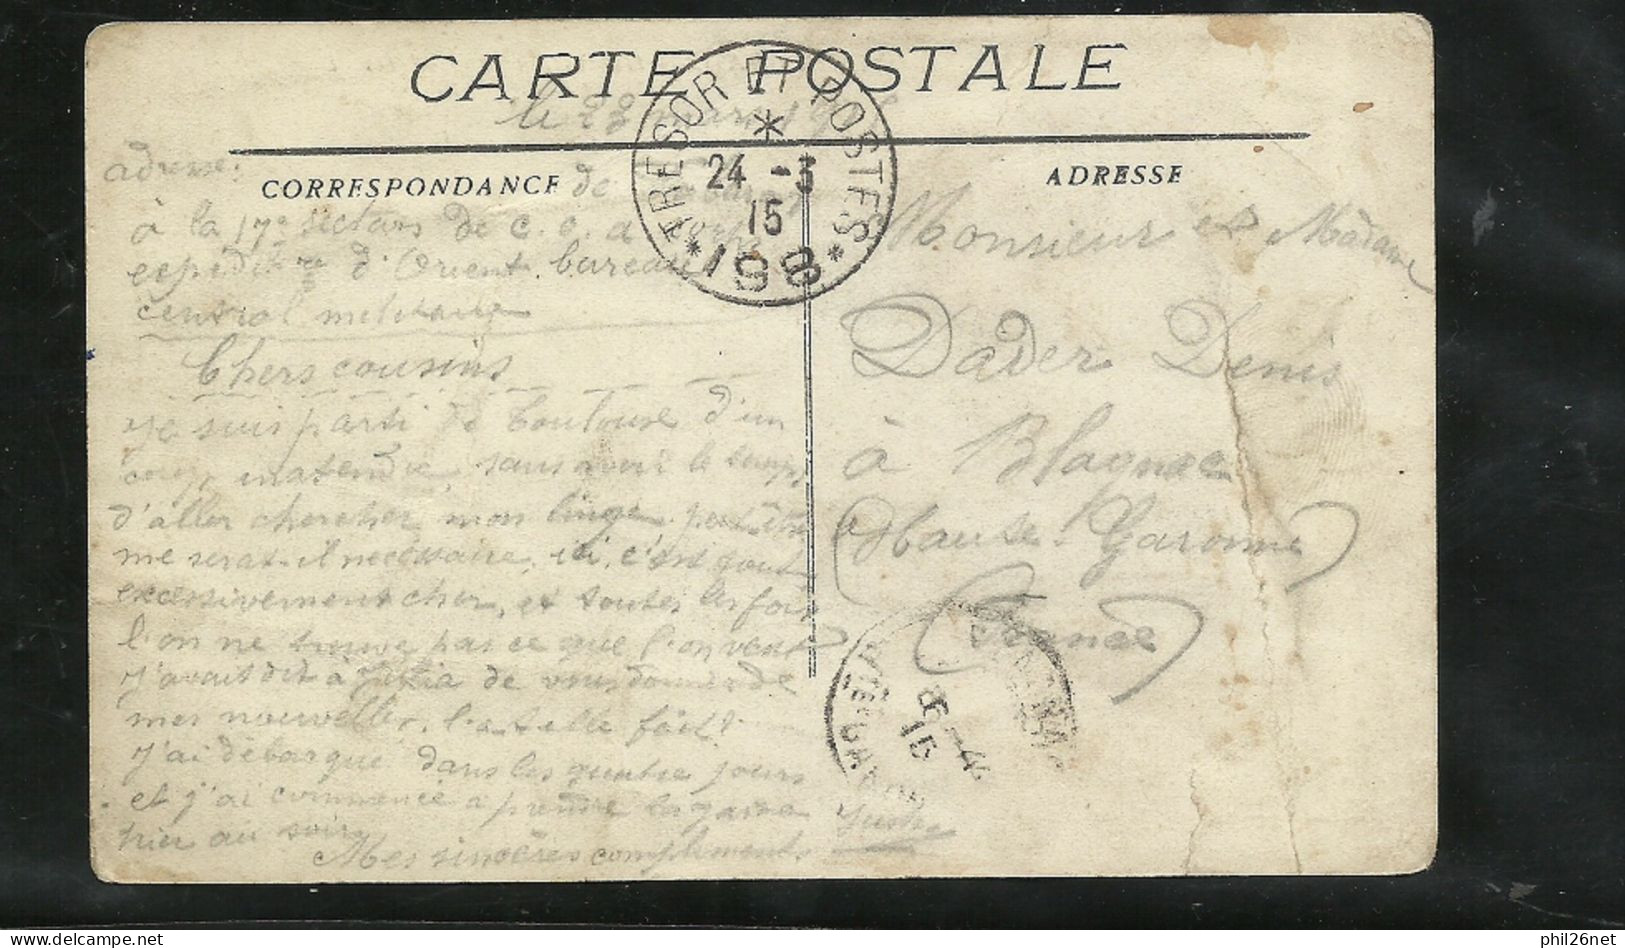 CARTE POSTALE
le 23 mars
TRESOR ET POSTES
24 -3
15
* 198 *
CORRESPONDANCE
ADRESSE
adresse:
à la 17e section de C. O. a
expéditre d'Orient bureau
central militaire
Chers cousins
je suis parti de Toulouse d'un
sans avoir le temps
d'aller chercher mon linge peut être
me serat-il nécessaire, ici c'est tout
excessivement cher, et toutes les fois
l'on ne trouve pas ce que l'on veut
J'avait dit à de vous donner de
mes nouvelles, l'a t elle fait?
J'ai débarqué dans les quatre jours
et j'ai commencé a prendre la
hier au soir
Mes sincères compliments
Monsieur et Madame
Dader Denis
à Blagnac
(Haute Garonne)
(France)
HAUTE
8 -4
15